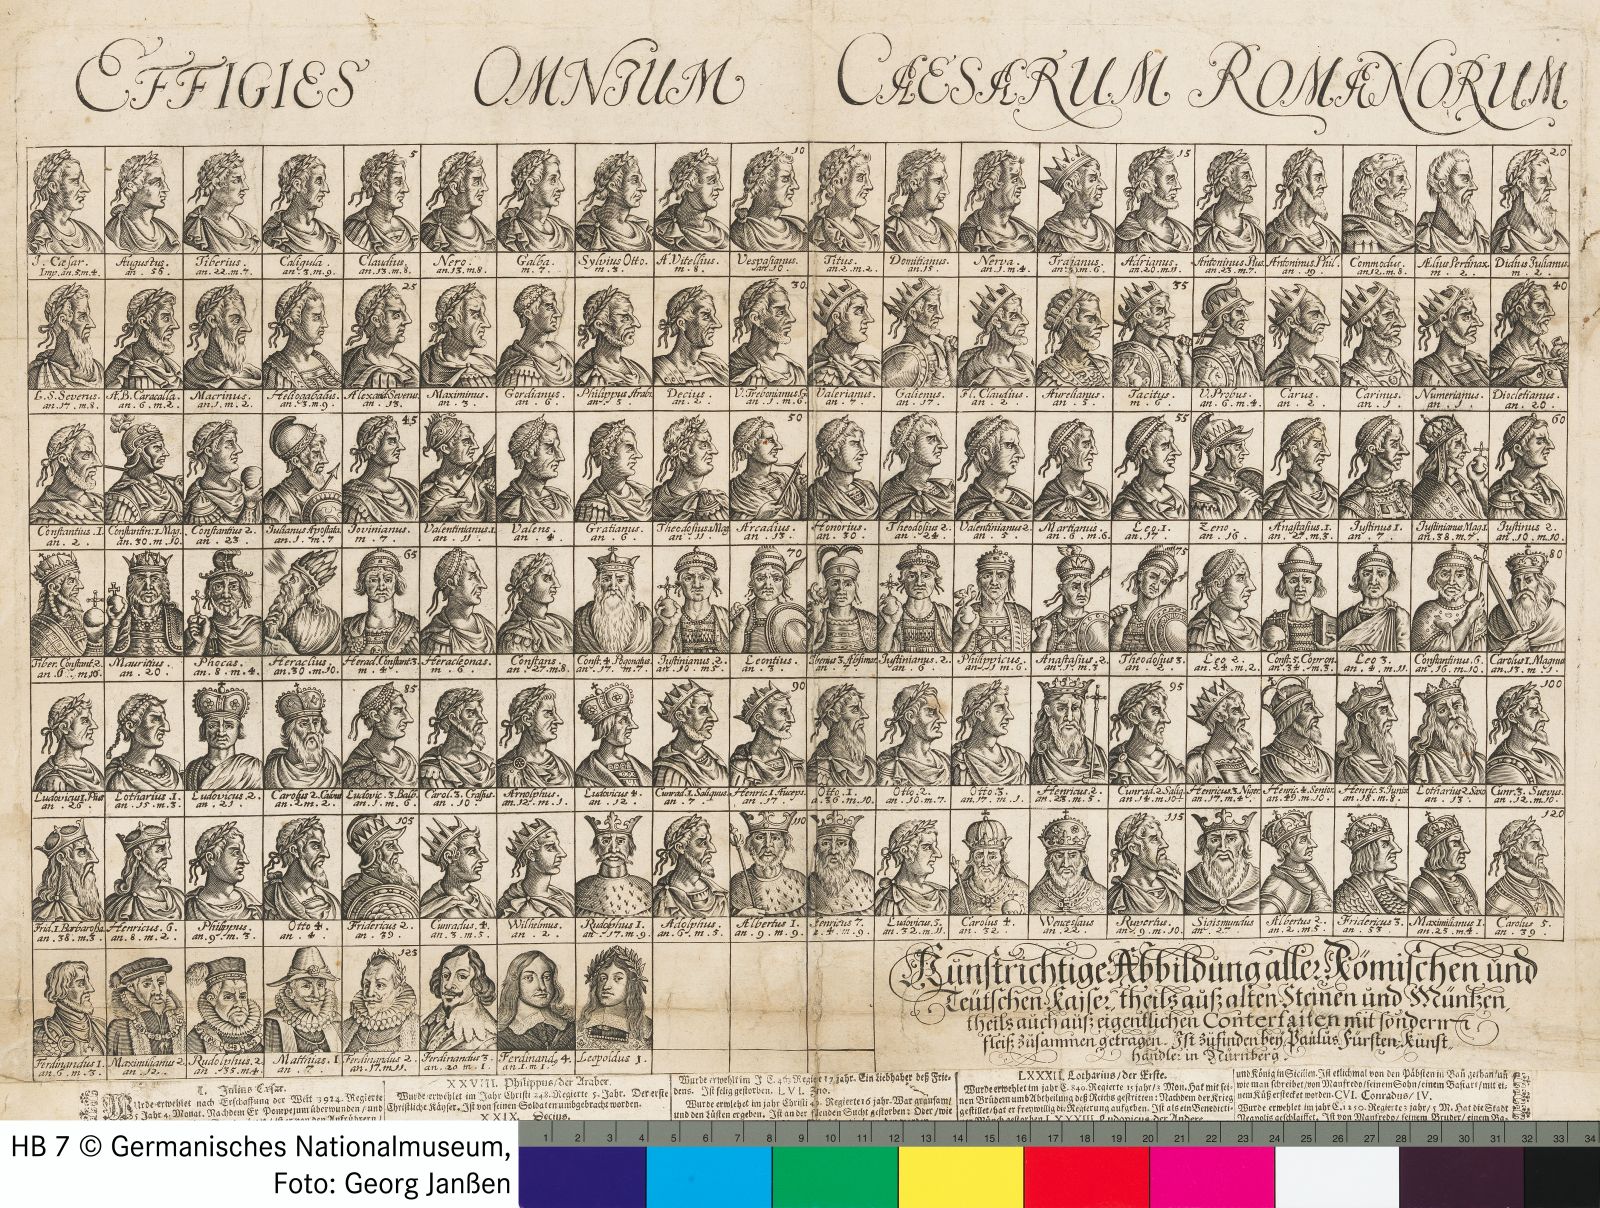 EFFIGIES OMNIUM CAESARUM ROMANORUM
5 10 15 20
J. Cæsar. Augustus. Tiberius. Caligula. Claudius. Nero. Galba. Sylvius Otto. A. Vitellius. Vespasianus. Titus. Domitianus. Nerva. Trajanus. Adrianus. Antoninus Pius. Antoninus Phil. Commodus. Ælius Pertinax. Didius Julianus.
Imp. an. 5. m. 4. an. 56. an. 22. m. 7. an. 3. m. 9. an. 13. m. 8. an. 13. m. 8. m. 7. m. 3. m. 8. an. 10. an. 2. m. 2. an. 15. an. 1. m. 4. an. 20. m. 11. an. 23. m. 7. an. 19. an. 12. m. 8. m. 2. m. 2.
25 30 35 40
L. S. Severus. A. B. Caracalla. Macrinus. Heliogabalus. Alexand. Severus. Maximinus. Gordianus. Philippus Arab. Decius. V. Trebonianus G. Valerianus. Galienus. Fl. Claudius. Aurelianus. Tacitus. V. Probus. Carus. Carinus. Numerianus. Diocletianus.
an. 17. m. 8. an. 6. m. 2. an. 1. m. 2. an. 3. m. 9. an. 13. an. 3. an. 6. an. 5. an. 2. an. 7. an. 2. an. 5. m. 6. an. 6. m. 4. an. 2. an. 1. an. 1. an. 20.
45 50 55 60
Constantius. 1. Constantin. 1. Mag. Constantius 2. Julianus Apostata. Jovinianus. Valentinianus. 1. Valens. Gratianus. Theodosius. 1. Mag. Arcadius. Honorius. Theodosius 2. Valentinianus 2. Martianus. Leo. 1. Zeno. Anastasius. 1. Justinus 1. Justinianus. Mag. 1. Justinus 2.
an. 2. an. 30. m. 10. an. 23. an. 1. m. 7. m. 7. an. 11. an. 4. an. 6. an. 11. an. 13. an. 30. an. 24. an. 5. an. 6. m. 6. an. 17. an. 16. an. 27. m. 3. an. 7. an. 38. m. 7. an. 10. m. 10.
65 70 75 80
Tiber. Constant. 2. Mauritius. Phocas. Heraclius. Herad. Constant. 3. Heracleonas. Constans. Const. 4. Pogonatus. Justinianus. 2. Leontius. Justinianus. 2. Philippicus. Anastasius. 2. Theodosius 3. Leo 2. Const. 5. Copron. Leo 3. Constantinus. 6. Carolus 1. Magnus
an. 20. an. 8. m. 4. an. 30. m. 10. m. 4. m. 6. an. 27. m. 8. an. 17. m. 7. an. 10. m. 3. an. 3. an. 6. an. 1. m. 6. an. 2. m. 3. an. 2. an. 24. m. 2. an. 34. m. 3. an. 4. m. 11. an. 16. m. 10. an. 13. m. 1.
85 90 95 100
Ludovicus 1. Pius Lotharius. 1. Ludovicus. 2. Carolus 2. Calvus Ludovic. 3. Balb. Carol. 3. Crassus. Arnolphus. Ludovicus. 4. Cunrad. 1. Saliquus. Henric. 1. Auceps. Otto. 1. Otto. 2. Otto. 3. Henricus. 2. Cunrad. 2. Saliq. Henricus. 3. Niger. Henric. 4. Senior. Henric. 5. Junior. Lotharius 2. Saxo. Cunr. 3. Suevus.
an. 26. an. 15. m. 3. an. 21. an. 2. m. 2. an. 1. m. 6. an. 10. an. 12. m. 1. an. 12. an. 7. an. 17. a. 36. m. 10. an. 10. m. 7. an. 17. m. 1. an. 23. m. 5. an. 14. m. 10. an. 17. m. 4. an. 49. m. 10. an. 18. m. 8. an. 13. an. 12. m. 10.
105 110 115 120
Frid. 1. Barbarossa. Henricus. 6. Philippus. Otto 4. Fridericus 2. Cunradus. 4. Wilhelmus. Rudolphus 1. Adolphus. Albertus 1. Henricus 7. Ludovic. 5. Carolus 4. Wenceslaus Rupertus. Sigismundus Albertus 2. Fridericus 3. Maximilianus 1. Carolus 5.
an. 38. m. 3. an. 8. m. 2. an. 9. m. 3. an. 4. an. 39. an. 3. m. 5. an. 2. an. 17. m. 9. an. 6. m. 5. an. 9. m. 9. an. 32. m. 11. an. 32. an. 22. an. 9. m. 10. an. 27. an. 2. m. 5. an. 53. an. 25. m. 4. an. 39.
125
Ferdinandus 1. Maximilianus 2. Rudolphus. 2. Matthias. 1 Ferdinandus 2. Ferdinandus 3. Ferdinand9. 4. Leopoldus 1.
an. 6. m. 3. an. 12. an. 35. m. 4. an. 17. m. 11. an. 20. m. 1. an. 1. m. 1.
Kunstrichtige Abbildung aller Römischen und
Teütschen Kaiser, theils auß alten Steinen und Müntzen,
theils auch auß eigentlichen Conterfaiten mit sondern
fleiß zusammen getragen. Ist zufinden bey Paulus Fürsten Kunst-
händler in Nürnberg.
I. Julius Cæsar.
Würde erwehlet nach Erschaffung der Welt 3924. Regierte
5 Jahr 4. Monat. Nachdem Er Pompejum überwunden / und
XXVIII. Philippus / der Araber.
Wurde erwehlt im Jahr Christi 248. Regierte 5. Jahr. Der erste
Christliche Käyser. Ist von seinen Soldaten umbgebracht worden.
XXIX. Decius.
LXXXII. Lotharius / der Erste.
Wurde erwehlet im jahr C. 840. Regierte 15 jahr / 3 Mon. Hat mit sei-
nen Brüdern und Abtheilung deß Reichs gestritten: Nachdem der Krieg
und König in Sicilien. Ist etlichmal von den Päbsten in Bañ gethan / uñ
wie man schreibet / von Manfredo / seinem Sohn / einem Bastart / mit ei-
nem Küß ersteckt worden. CVI. Conradus / IV.
HB 7 © Germanisches Nationalmuseum,
Foto: Georg Janßen
1 2 3 4 5 6 7 8 9 10 11 12 13 14 15 16 17 18 19 20 21 22 23 24 25 26 27 28 29 30 31 32 33 34